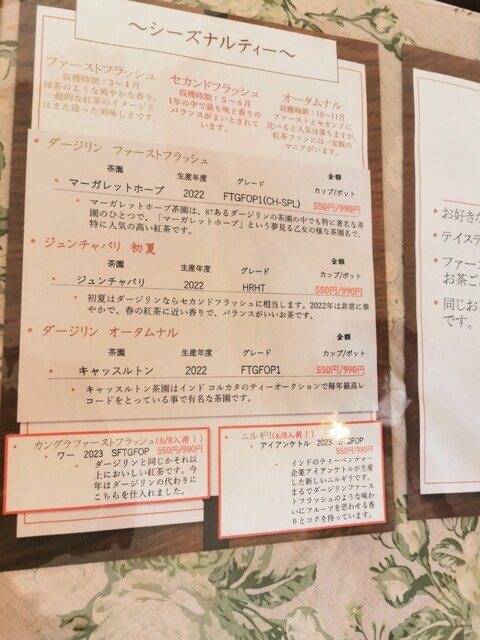 ～シーズナルティー～
ファーストフラッシュ
収穫時期：3～4月
緑茶のような爽やかな香り、
一般的な紅茶のイメージと
はまた違った美味しさです。
セカンドフラッシュ
収穫時期：5～6月
1年の中で最も味と香りの
バランスがよいとされて
います。
オータムナル
収穫時期：10～11月
ファーストとセカンドに
比べると人気は落ちますが、
紅茶ファンには一定数の
マニアがいます。
・ダージリン ファーストフラッシュ
茶園 生産年度 グレード 金額
カップ/ポット
・マーガレットホープ 2022 FTGFOP1(CH-SPL) 550円/990円
・マーガレットホープ茶園は、87あるダージリンの茶園の中でも特に著名な茶
園のひとつで、「マーガレットホープ」という夢見る乙女の様な茶園名で、
特に人気の高い紅茶です。
・ジュンチャバリ 初夏
茶園 生産年度 グレード 金額
カップ/ポット
・ジュンチャバリ 2022 HRHT 550円/990円
・初夏はダージリンならセカンドフラッシュに相当します。2022年は非常に華
やかで、春の紅茶に近い香りで、バランスがいいお茶です。
・ダージリン オータムナル
茶園 生産年度 グレード 金額
カップ/ポット
・キャッスルトン 2022 FTGFOP1 550円/990円
・キャッスルトン茶園はインド コルカタのティーオークションで毎年最高レ
コードをとっている事で有名な茶園です。
・カングラファーストフラッシュ(6/8入荷！)
・ワー 2023 SFTGFOP 550円/990円
・ダージリンと同じかそれ以
上においしい紅茶です。今
年はダージリンの代わりに
こちらを仕入れました。
・ニルギリ(6/8入荷！)
・アイアンケトル 2023 SFGFOP
550円/990円
・インドのティーベンチャー
企業アイアンケトルが生産
した新しいニルギリです。
まるでダージリンファース
トフラッシュのような味わ
いにフルーツを思わせる香
りとコクを持っています。
・お好きな
・テイステ
・ファー
お茶ご
・同じお
です。